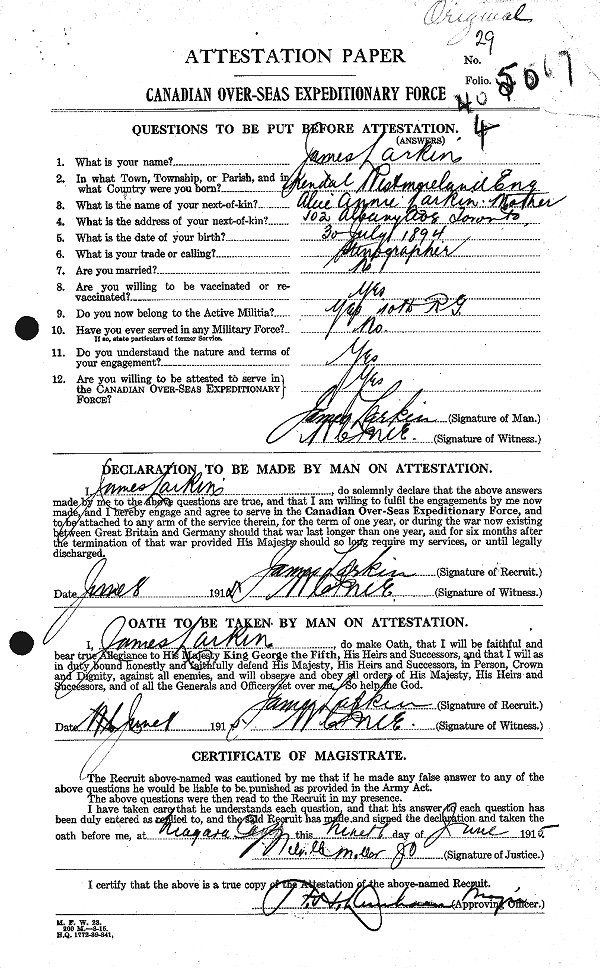 Original
29
ATTESTATION PAPER
No.
Folio.
CANADIAN OVER-SEAS EXPEDITIONARY FORCE
QUESTIONS TO BE PUT BEFORE ATTESTATION.
(ANSWERS)
1. What is your name? James Larkin
2. In what Town, Township, or Parish, and in what Country were you born? Kendal Westmoreland Eng
3. What is the name of your next-of-kin? Alice Annie Larkin. Mother
4. What is the address of your next-of-kin? 102 Albany Ave Toronto
5. What is the date of your birth? 30 July 1894
6. What is your trade or calling? Stenographer
7. Are you married? No
8. Are you willing to be vaccinated or re-
vaccinated? Yes
9. Do you now belong to the Active Militia? Yes 10th R G
10. Have you ever served in any Military Force? No.
If so, state particulars of former Service.
11. Do you understand the nature and terms of
your engagement? Yes
12. Are you willing to be attested to serve in
the CANADIAN OVER-SEAS EXPEDITIONARY
FORCE? Yes
James Larkin (Signature of Man.)
(Signature of Witness.)
DECLARATION TO BE MADE BY MAN ON ATTESTATION.
I, James Larkin, do solemnly declare that the above answers
made by me to the above questions are true, and that I am willing to fulfil the engagements by me now
made, and I hereby engage and agree to serve in the Canadian Over-Seas Expeditionary Force, and
to be attached to any arm of the service therein, for the term of one year, or during the war now existing
between Great Britain and Germany should that war last longer than one year, and for six months after
the termination of that war provided His Majesty should so long require my services, or until legally
discharged.
James Larkin (Signature of Recruit.)
Date June 8 191 (Signature of Witness.)
OATH TO BE TAKEN BY MAN ON ATTESTATION.
I, James Larkin, do make Oath, that I will be faithful and
bear true Allegiance to His Majesty King George the Fifth, His Heirs and Successors, and that I will as
in duty bound honestly and faithfully defend His Majesty, His Heirs and Successors, in Person, Crown
and Dignity, against all enemies, and will observe and obey all orders of His Majesty, His Heirs and
Successors, and of all the Generals and Officers set over me. So help me God.
James Larkin (Signature of Recruit.)
Date June 191 (Signature of Witness.)
CERTIFICATE OF MAGISTRATE.
The Recruit above-named was cautioned by me that if he made any false answer to any of the
above questions he would be liable to be punished as provided in the Army Act.
The above questions were then read to the Recruit in my presence.
I have taken care that he understands each question, and that his answer to each question has
been duly entered as replied to, and the said Recruit has made and signed the declaration and taken the
oath before me, at Niagara this day of June 1915
Miller (Signature of Justice.)
I certify that the above is a true copy of the Attestation of the above-named Recruit.
(Approving Officer.)
M. F. W. 23.
200 M.—8-15.
H.Q. 1772-39-841.